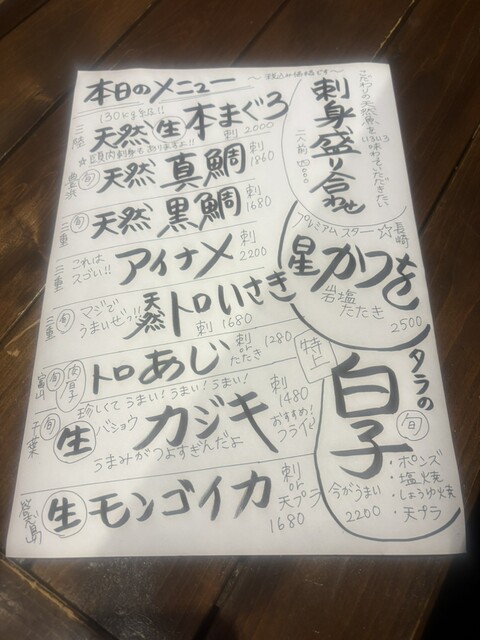 本日のメニュー
〜税込み価格です〜
130kg級!!
三陸 天然 生 本まぐろ 刺 2000
☆頭肉刺身もありますよ!!
旬 天然 真鯛 刺 1860
三重 旬 天然 黒鯛 刺 1680
三重 これは スゴい!! アイナメ 刺 2200
三重 旬 マジで うまいぜッ!! 天然 トロいさき
刺 1680
富山 旬 肉厚 トロあじ 刺 or たたき 1280
珍しくて うまい! うまい! うまい!
千葉 生 バショウ カジキ 刺 1480
おすすめ! フライ
うまみがつよすぎんだよ
生 モンゴイカ 刺 or 天プラ 1680
こだわりの天然魚を
いろいろ味わっていただきたい
刺身盛り合わせ
二人前 四000
プレミアム スター ☆ 長崎
星 かつを
岩塩
たたき
2500
特上
タラの
白子
旬
今がうまい
2200
・ポンズ
・塩焼
・しょうゆ焼
・天プラ